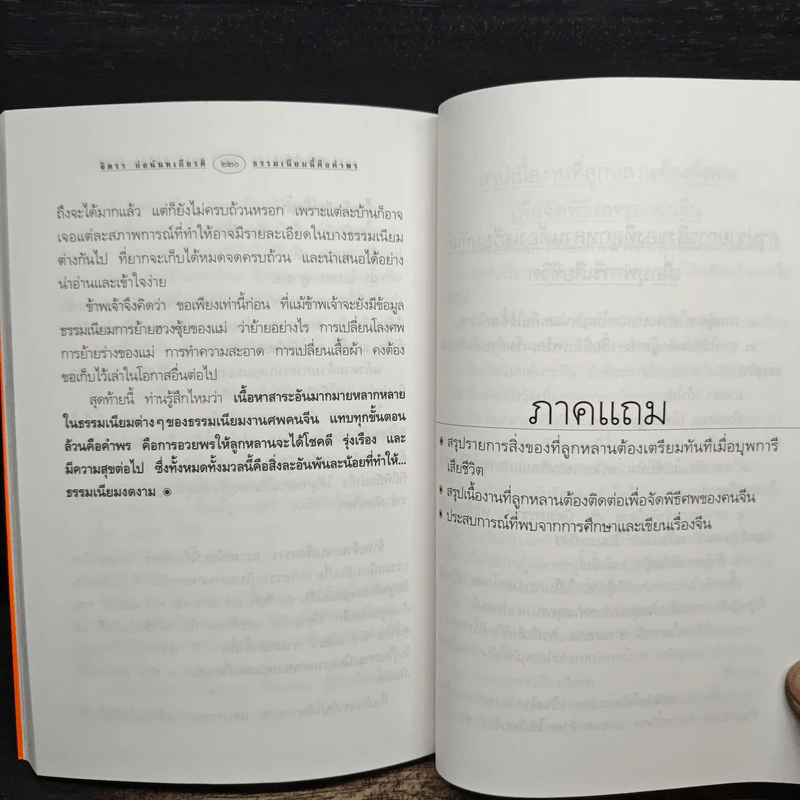 จิตรา ก่อนันทเกียรติ ๒๒๐ ธรรมเนียมนี้คือคำพร
ถึงจะได้มากแล้ว แต่ก็ยังไม่ครบถ้วนหรอก เพราะแต่ละบ้านก็อาจ
เจอแต่ละสภาพการณ์ที่ทำให้อาจมีรายละเอียดในบางธรรมเนียม
ต่างกันไป ที่ยากจะเก็บได้หมดจดครบถ้วน และนำเสนอได้อย่าง
น่าอ่านและเข้าใจง่าย
ข้าพเจ้าจึงคิดว่า ขอเพียงเท่านี้ก่อน ที่แม้ข้าพเจ้าจะยังมีข้อมูล
ธรรมเนียมการย้ายฮวงซุ้ยของแม่ ว่าย้ายอย่างไร การเปลี่ยนโลงศพ
การย้ายร่างของแม่ การทำความสะอาด การเปลี่ยนเสื้อผ้า คงต้อง
ขอเก็บไว้เล่าในโอกาสอื่นต่อไป
สุดท้ายนี้ ท่านรู้สึกไหมว่า เนื้อหาสาระอันมากมายหลากหลาย
ในธรรมเนียมต่างๆของธรรมเนียมงานศพคนจีน แทบทุกขั้นตอน
ล้วนคือคำพร คือการอวยพรให้ลูกหลานจะได้โชคดี รุ่งเรือง และ
มีความสุขต่อไป ซึ่งทั้งหมดทั้งมวลนี้คือสิ่งละอันพันละน้อยที่ทำให้...
ธรรมเนียมงดงาม ◉
ภาคแถม
◉ สรุปรายการสิ่งของที่ลูกหลานต้องเตรียมทันทีเมื่อบุพการี
เสียชีวิต
◉ สรุปเนื้องานที่ลูกหลานต้องติดต่อเพื่อจัดพิธีศพของคนจีน
◉ ประสบการณ์ที่พบจากการศึกษาและเขียนเรื่องจีน